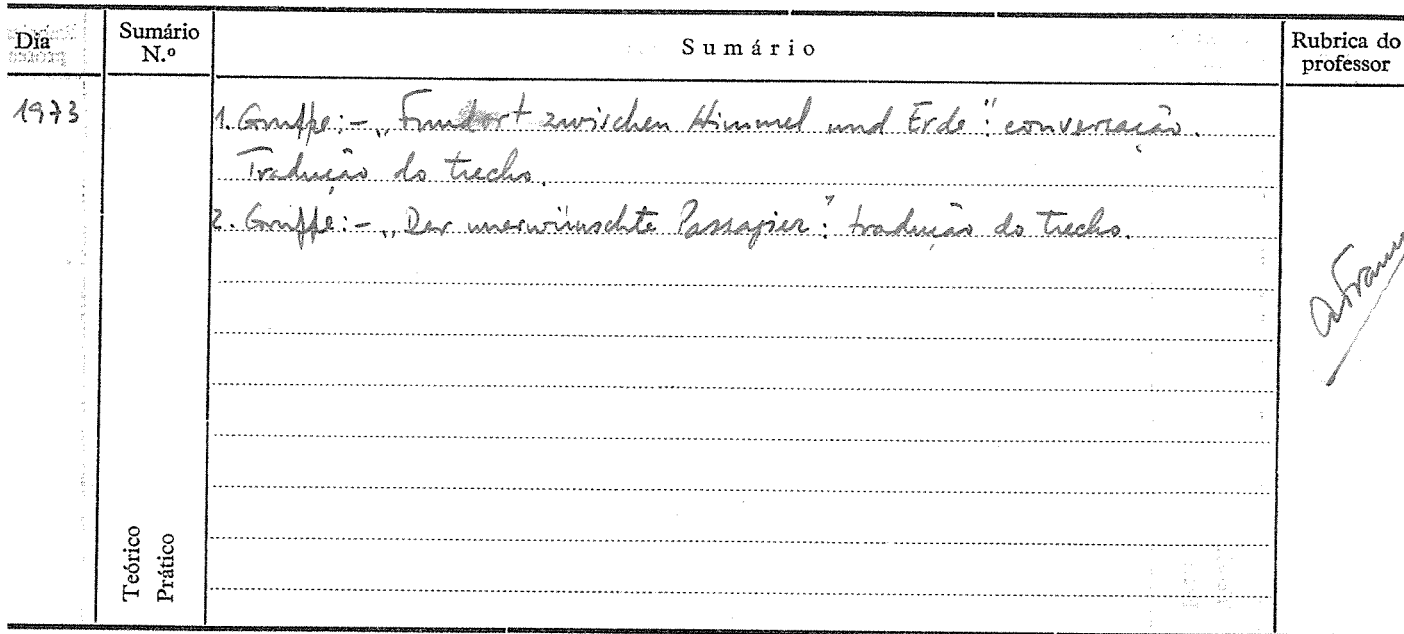 Dia
Sumário N.º
Sumário
Rubrica do professor
1973
1. Gruppe: - „Fundort zwischen Himmel und Erde": conversação.
Tradução do trecho.
2. Gruppe: - „Der unerwünschte Passagier": tradução do trecho.
Teórico
Prático